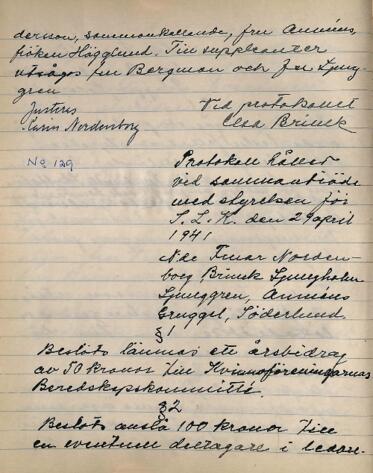 dersson, sammankallande, fru Annéus,
fröken Högglund. Till suppleanter
utsågos fru Bergman och fru Ljung-
gren
Justeras Vid protokollet
Karin Nordenborg Elsa Brinck
No 129
Protokoll hållet
vid sammanträde
med styrelsen för
S. L. K. den 29 april
1941
N.de Fruar Norden-
borg, Brinck Ljungholm
Ljunggren, Annéus
Söderlund
§ 1
Beslöts lämnas ett årsbidrag
av 50 kronor till Kvinnoföreningarnas
Beredskapskommitté.
§ 2
Beslöts anslå 100 kronor till
en eventuell deltagare i ledare-